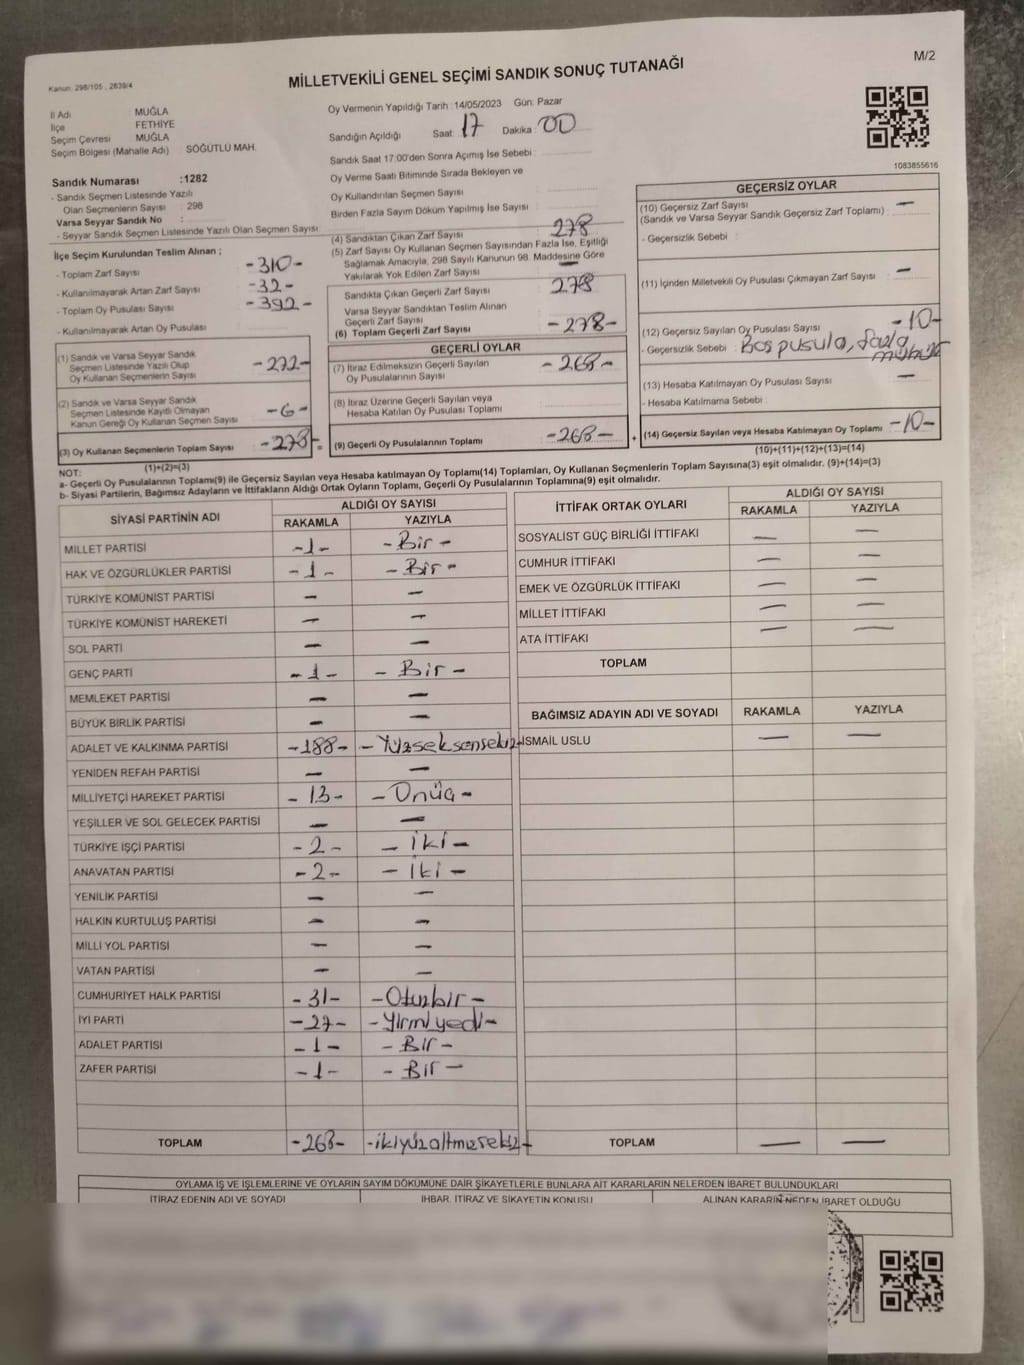 M/2
Kanun: 298/105 , 2839/4
MİLLETVEKİLİ GENEL SEÇİMİ SANDIK SONUÇ TUTANAĞI
İl Adı : MUĞLA
İlçe : FETHİYE
Seçim Çevresi : MUĞLA
Seçim Bölgesi (Mahalle Adı) SÖĞÜTLÜ MAH.
Oy Vermenin Yapıldığı Tarih : 14/05/2023 Gün: Pazar
Sandığın Açıldığı Saat: 17 Dakika: 00
Sandık Saat 17.00'den Sonra Açımış İse Sebebi :
Oy Verme Saati Bitiminde Sırada Bekleyen ve
Oy Kullandırılan Seçmen Sayısı
Birden Fazla Sayım Döküm Yapılmış İse Sayısı :
1083855616
Sandık Numarası :1282
- Sandık Seçmen Listesinde Yazılı
Olan Seçmenlerin Sayısı : 298
Varsa Seyyar Sandık No :
- Seyyar Sandık Seçmen Listesinde Yazılı Olan Seçmen Sayısı:
İlçe Seçim Kurulundan Teslim Alınan ;
- Toplam Zarf Sayısı -310-
- Kullanılmayarak Artan Zarf Sayısı -32-
- Toplam Oy Pusulası Sayısı -392-
- Kullanılmayarak Artan Oy Pusulası
(1) Sandık ve Varsa Seyyar Sandık
Seçmen Listesinde Yazılı Olup
Oy Kullanan Seçmenlerin Sayısı -272-
(2) Sandık ve Varsa Seyyar Sandık
Seçmen Listesinde Kayıtlı Olmayan
Kanun Gereği Oy Kullanan Seçmen Sayısı -6-
(3) Oy Kullanan Seçmenlerin Toplam Sayısı -278-
(1)+(2)=(3)
(4) Sandıktan Çıkan Zarf Sayısı 278
(5) Zarf Sayısı Oy Kullanan Seçmen Sayısından Fazla İse, Eşitliği
Sağlamak Amacıyla, 298 Sayılı Kanunun 98. Maddesine Göre
Yakılarak Yok Edilen Zarf Sayısı —
Sandıkta Çıkan Geçerli Zarf Sayısı 278
Varsa Seyyar Sandıktan Teslim Alınan
Geçerli Zarf Sayısı
(6) Toplam Geçerli Zarf Sayısı -278-
GEÇERLİ OYLAR
(7) İtiraz Edilmeksizin Geçerli Sayılan
Oy Pusulalarının Sayısı -268-
(8) İtiraz Üzerine Geçerli Sayılan veya
Hesaba Katılan Oy Pusulası Toplamı
= (9) Geçerli Oy Pusulalarının Toplamı -268-
GEÇERSİZ OYLAR
(10) Geçersiz Zarf Sayısı —
(Sandık ve Varsa Seyyar Sandık Geçersiz Zarf Toplamı) :
- Geçersizlik Sebebi :
(11) İçinden Milletvekili Oy Pusulası Çıkmayan Zarf Sayısı : —
(12) Geçersiz Sayılan Oy Pusulası Sayısı -10-
- Geçersizlik Sebebi : Boş pusula, fazla
mühür
(13) Hesaba Katılmayan Oy Pusulası Sayısı —
- Hesaba Katılmama Sebebi :
+ (14) Geçersiz Sayılan veya Hesaba Katılmayan Oy Toplamı -10-
(10)+(11)+(12)+(13)=(14)
NOT:
a- Geçerli Oy Pusulalarının Toplamı(9) ile Geçersiz Sayılan veya Hesaba katılmayan Oy Toplamı(14) Toplamları, Oy Kullanan Seçmenlerin Toplam Sayısına(3) eşit olmalıdır. (9)+(14)=(3)
b- Siyasi Partilerin, Bağımsız Adayların ve İttifakların Aldığı Ortak Oyların Toplamı, Geçerli Oy Pusulalarının Toplamına(9) eşit olmalıdır.
SİYASİ PARTİNİN ADI ALDIĞI OY SAYISI
RAKAMLA YAZIYLA
MİLLET PARTİSİ -1- -Bir-
HAK VE ÖZGÜRLÜKLER PARTİSİ -1- -Bir-
TÜRKİYE KOMÜNİST PARTİSİ — —
TÜRKİYE KOMÜNİST HAREKETİ — —
SOL PARTİ — —
GENÇ PARTİ -1- -Bir-
MEMLEKET PARTİSİ — —
BÜYÜK BİRLİK PARTİSİ — —
ADALET VE KALKINMA PARTİSİ -188- -Yüzseksensekiz-
YENİDEN REFAH PARTİSİ — —
MİLLİYETÇİ HAREKET PARTİSİ -13- -Onüç-
YEŞİLLER VE SOL GELECEK PARTİSİ — —
TÜRKİYE İŞÇİ PARTİSİ -2- -İki-
ANAVATAN PARTİSİ -2- -İki-
YENİLİK PARTİSİ — —
HALKIN KURTULUŞ PARTİSİ — —
MİLLİ YOL PARTİSİ — —
VATAN PARTİSİ — —
CUMHURİYET HALK PARTİSİ -31- -Otuzbir-
İYİ PARTİ -27- -Yirmiyedi-
ADALET PARTİSİ -1- -Bir-
ZAFER PARTİSİ -1- -Bir-
TOPLAM -268- -ikiyüzaltmışsekiz-
İTTİFAK ORTAK OYLARI ALDIĞI OY SAYISI
RAKAMLA YAZIYLA
SOSYALİST GÜÇ BİRLİĞİ İTTİFAKI — —
CUMHUR İTTİFAKI — —
EMEK VE ÖZGÜRLÜK İTTİFAKI — —
MİLLET İTTİFAKI — —
ATA İTTİFAKI — —
TOPLAM
BAĞIMSIZ ADAYIN ADI VE SOYADI RAKAMLA YAZIYLA
İSMAİL USLU — —
TOPLAM — —
OYLAMA İŞ VE İŞLEMLERİNE VE OYLARIN SAYIM DÖKÜMÜNE DAİR ŞİKAYETLERLE BUNLARA AİT KARARLARIN NELERDEN İBARET BULUNDUKLARI
İTİRAZ EDENİN ADI VE SOYADI İHBAR, İTİRAZ VE ŞİKAYETİN KONUSU ALINAN KARARIN NEDEN İBARET OLDUĞU